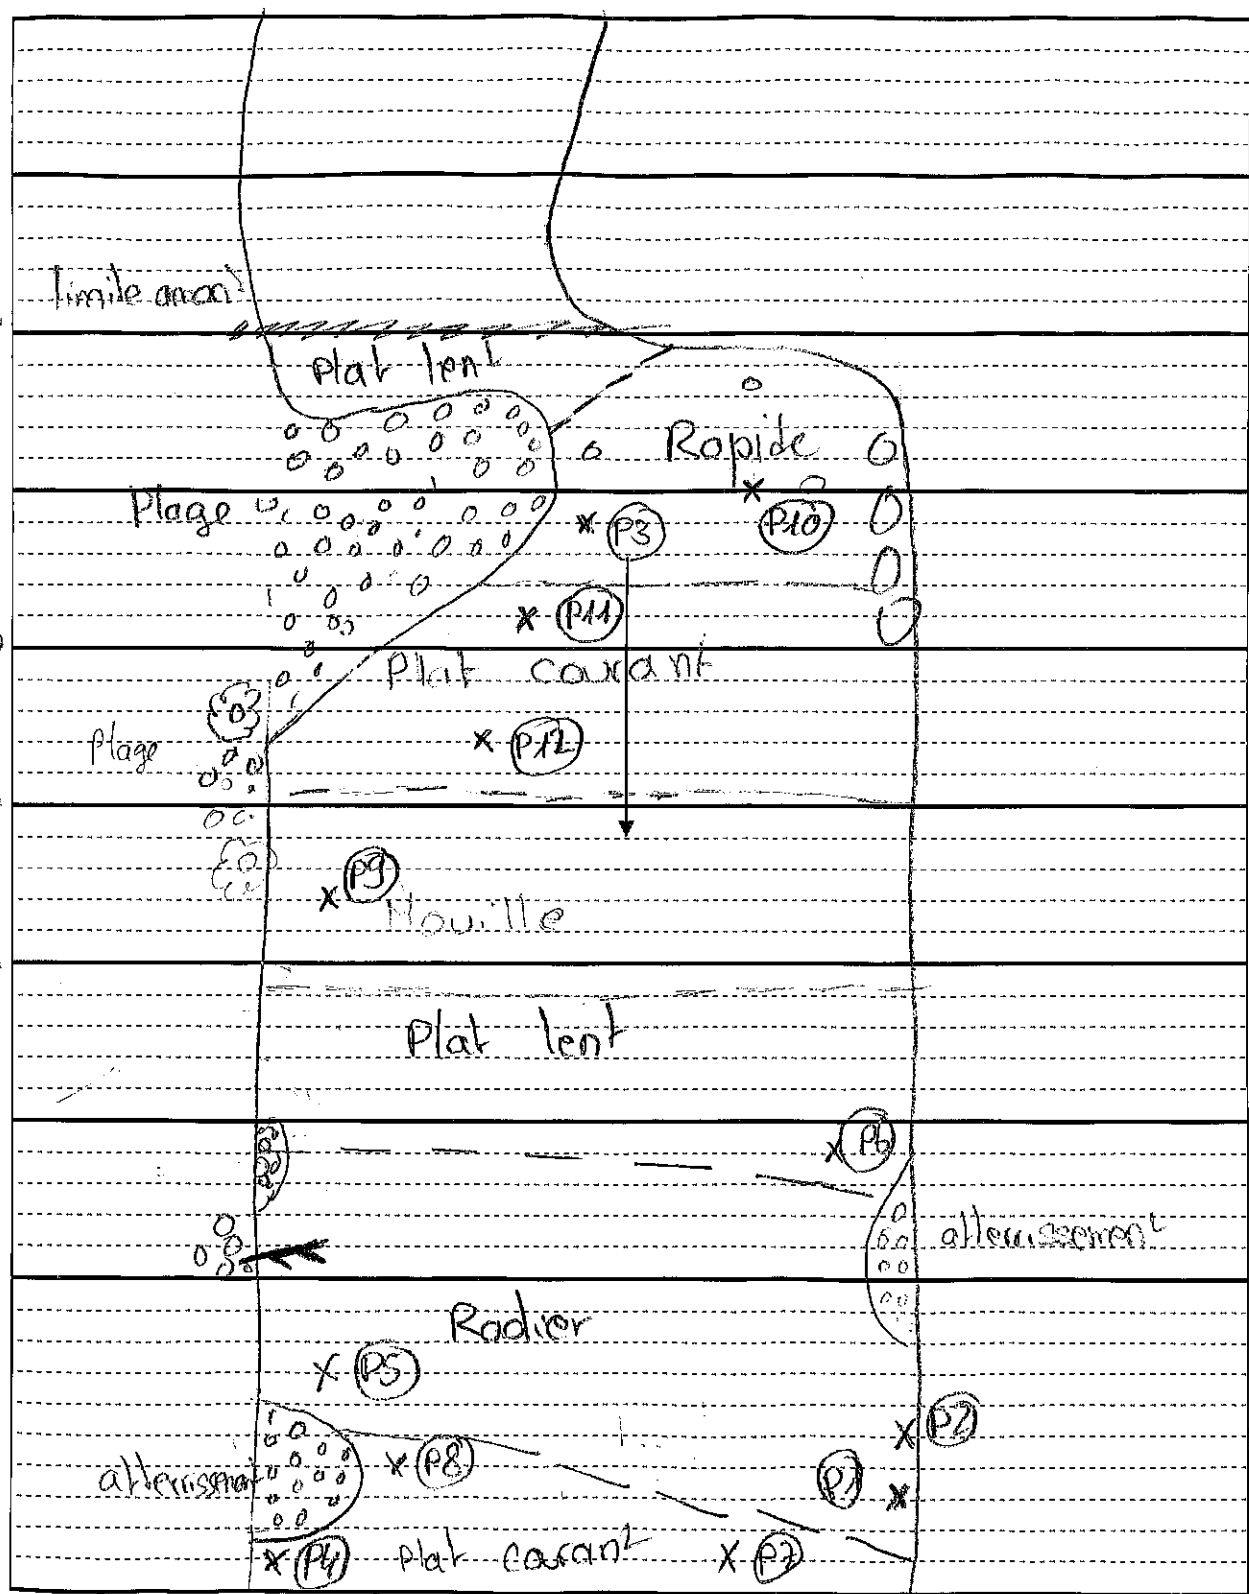 limite amont
Plat lent
Rapide
Plage
P3
P10
P11
Plat courant
Plage
P12
P9
Mouille
Plat lent
P6
atterrissement
Radier
P5
P2
atterrissement
P8
P1
P4
Plat courant
P7